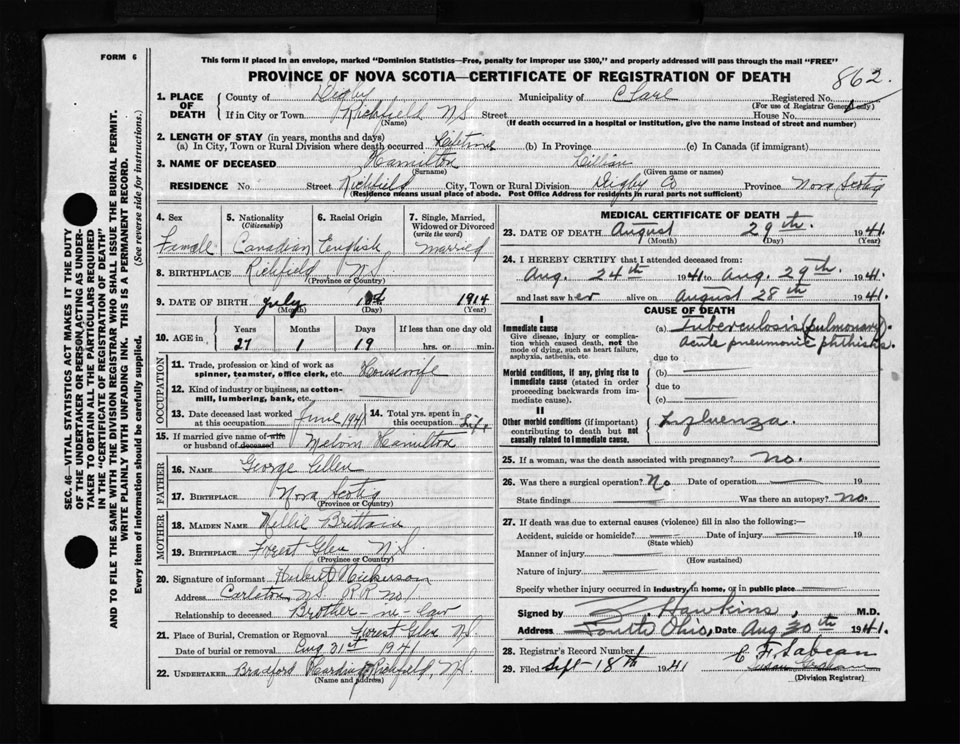 FORM 6
This form if placed in an envelope, marked "Dominion Statistics—Free, penalty for improper use $300," and properly addressed will pass through the mail "FREE"
PROVINCE OF NOVA SCOTIA—CERTIFICATE OF REGISTRATION OF DEATH
862.
1. PLACE OF DEATH
County of Digby Municipality of Clare Registered No.
(For use of Registrar General only)
If in City or Town Richfield N.S. Street House No.
(Name) (If death occurred in a hospital or institution, give the name instead of street and number)
2. LENGTH OF STAY (in years, months and days)
(a) In City, Town or Rural Division where death occurred Lifetime (b) In Province (c) In Canada (if immigrant)
3. NAME OF DECEASED Hamilton Lillian
(Surname) (Given name or names)
RESIDENCE No. Street Richfield City, Town or Rural Division Digby Co Province Nova Scotia
(Residence means usual place of abode. Post Office Address for residents in rural parts not sufficient)
4. Sex 5. Nationality (Citizenship) 6. Racial Origin 7. Single, Married, Widowed or Divorced (write the word)
Female Canadian English Married
8. BIRTHPLACE Richfield N.S.
(Province or Country)
9. DATE OF BIRTH July 1914
(Month) (Day) (Year)
10. AGE in Years Months Days If less than one day old
27 1 19 hrs. or min.
OCCUPATION
11. Trade, profession or kind of work as spinner, teamster, office clerk, etc. Housewife
12. Kind of industry or business, as cotton-mill, lumbering, bank, etc.
13. Date deceased last worked at this occupation June 1941 14. Total yrs. spent in this occupation Life
15. If married give name of wife or husband of deceased Melvin Hamilton
FATHER
16. NAME George
17. BIRTHPLACE Nova Scotia
(Province or Country)
MOTHER
18. MAIDEN NAME Nellie Brittain
19. BIRTHPLACE Forest Glen N.S.
(Province or Country)
20. Signature of informant Hubert Nickerson
Address Carleton N.S. R R No 1
Relationship to deceased Brother-in-law
21. Place of Burial, Cremation or Removal Forest Glen N.S.
Date of burial or removal Aug 31st 1941
22. UNDERTAKER Bradford Harding Richfield, N.S.
(Name and address)
MEDICAL CERTIFICATE OF DEATH
23. DATE OF DEATH August 29th 1941
(Month) (Day) (Year)
24. I HEREBY CERTIFY that I attended deceased from:
Aug. 24th 1941 to Aug. 29th 1941.
and last saw her alive on August 28th 1941.
CAUSE OF DEATH
I
Immediate cause
Give disease, injury or complication which caused death, not the mode of dying, such as heart failure, asphyxia, asthenia, etc
(a) Tuberculosis (pulmonary)
Acute pneumonic phthisis.
due to
Morbid conditions, if any, giving rise to immediate cause (stated in order proceeding backwards from immediate cause).
(b)
due to
(c)
II
Other morbid conditions (if important) contributing to death but not causally related to immediate cause.
Influenza.
25. If a woman, was the death associated with pregnancy? no.
26. Was there a surgical operation? No Date of operation 19
State findings Was there an autopsy? no.
27. If death was due to external causes (violence) fill in also the following:—
Accident, suicide or homicide? Date of injury 19
(State which)
Manner of injury
(How sustained)
Nature of injury
Specify whether injury occurred in industry, in home, or in public place
Signed by Hawkins, M.D.
Address South Ohio, Date Aug 30th 1941.
28. Registrar's Record Number
29. Filed Sept-18th 1941
(Division Registrar)
SEC. 46—VITAL STATISTICS ACT MAKES IT THE DUTY
OF THE UNDERTAKER OR PERSON ACTING AS UNDER-
TAKER TO OBTAIN ALL THE PARTICULARS REQUIRED
IN THE "CERTIFICATE OF REGISTRATION OF DEATH"
AND TO FILE THE SAME WITH THE DIVISION REGISTRAR WHO SHALL ISSUE THE BURIAL PERMIT.
WRITE PLAINLY WITH UNFADING INK. THIS IS A PERMANENT RECORD.
Every item of information should be carefully supplied. (See reverse side for instructions.)